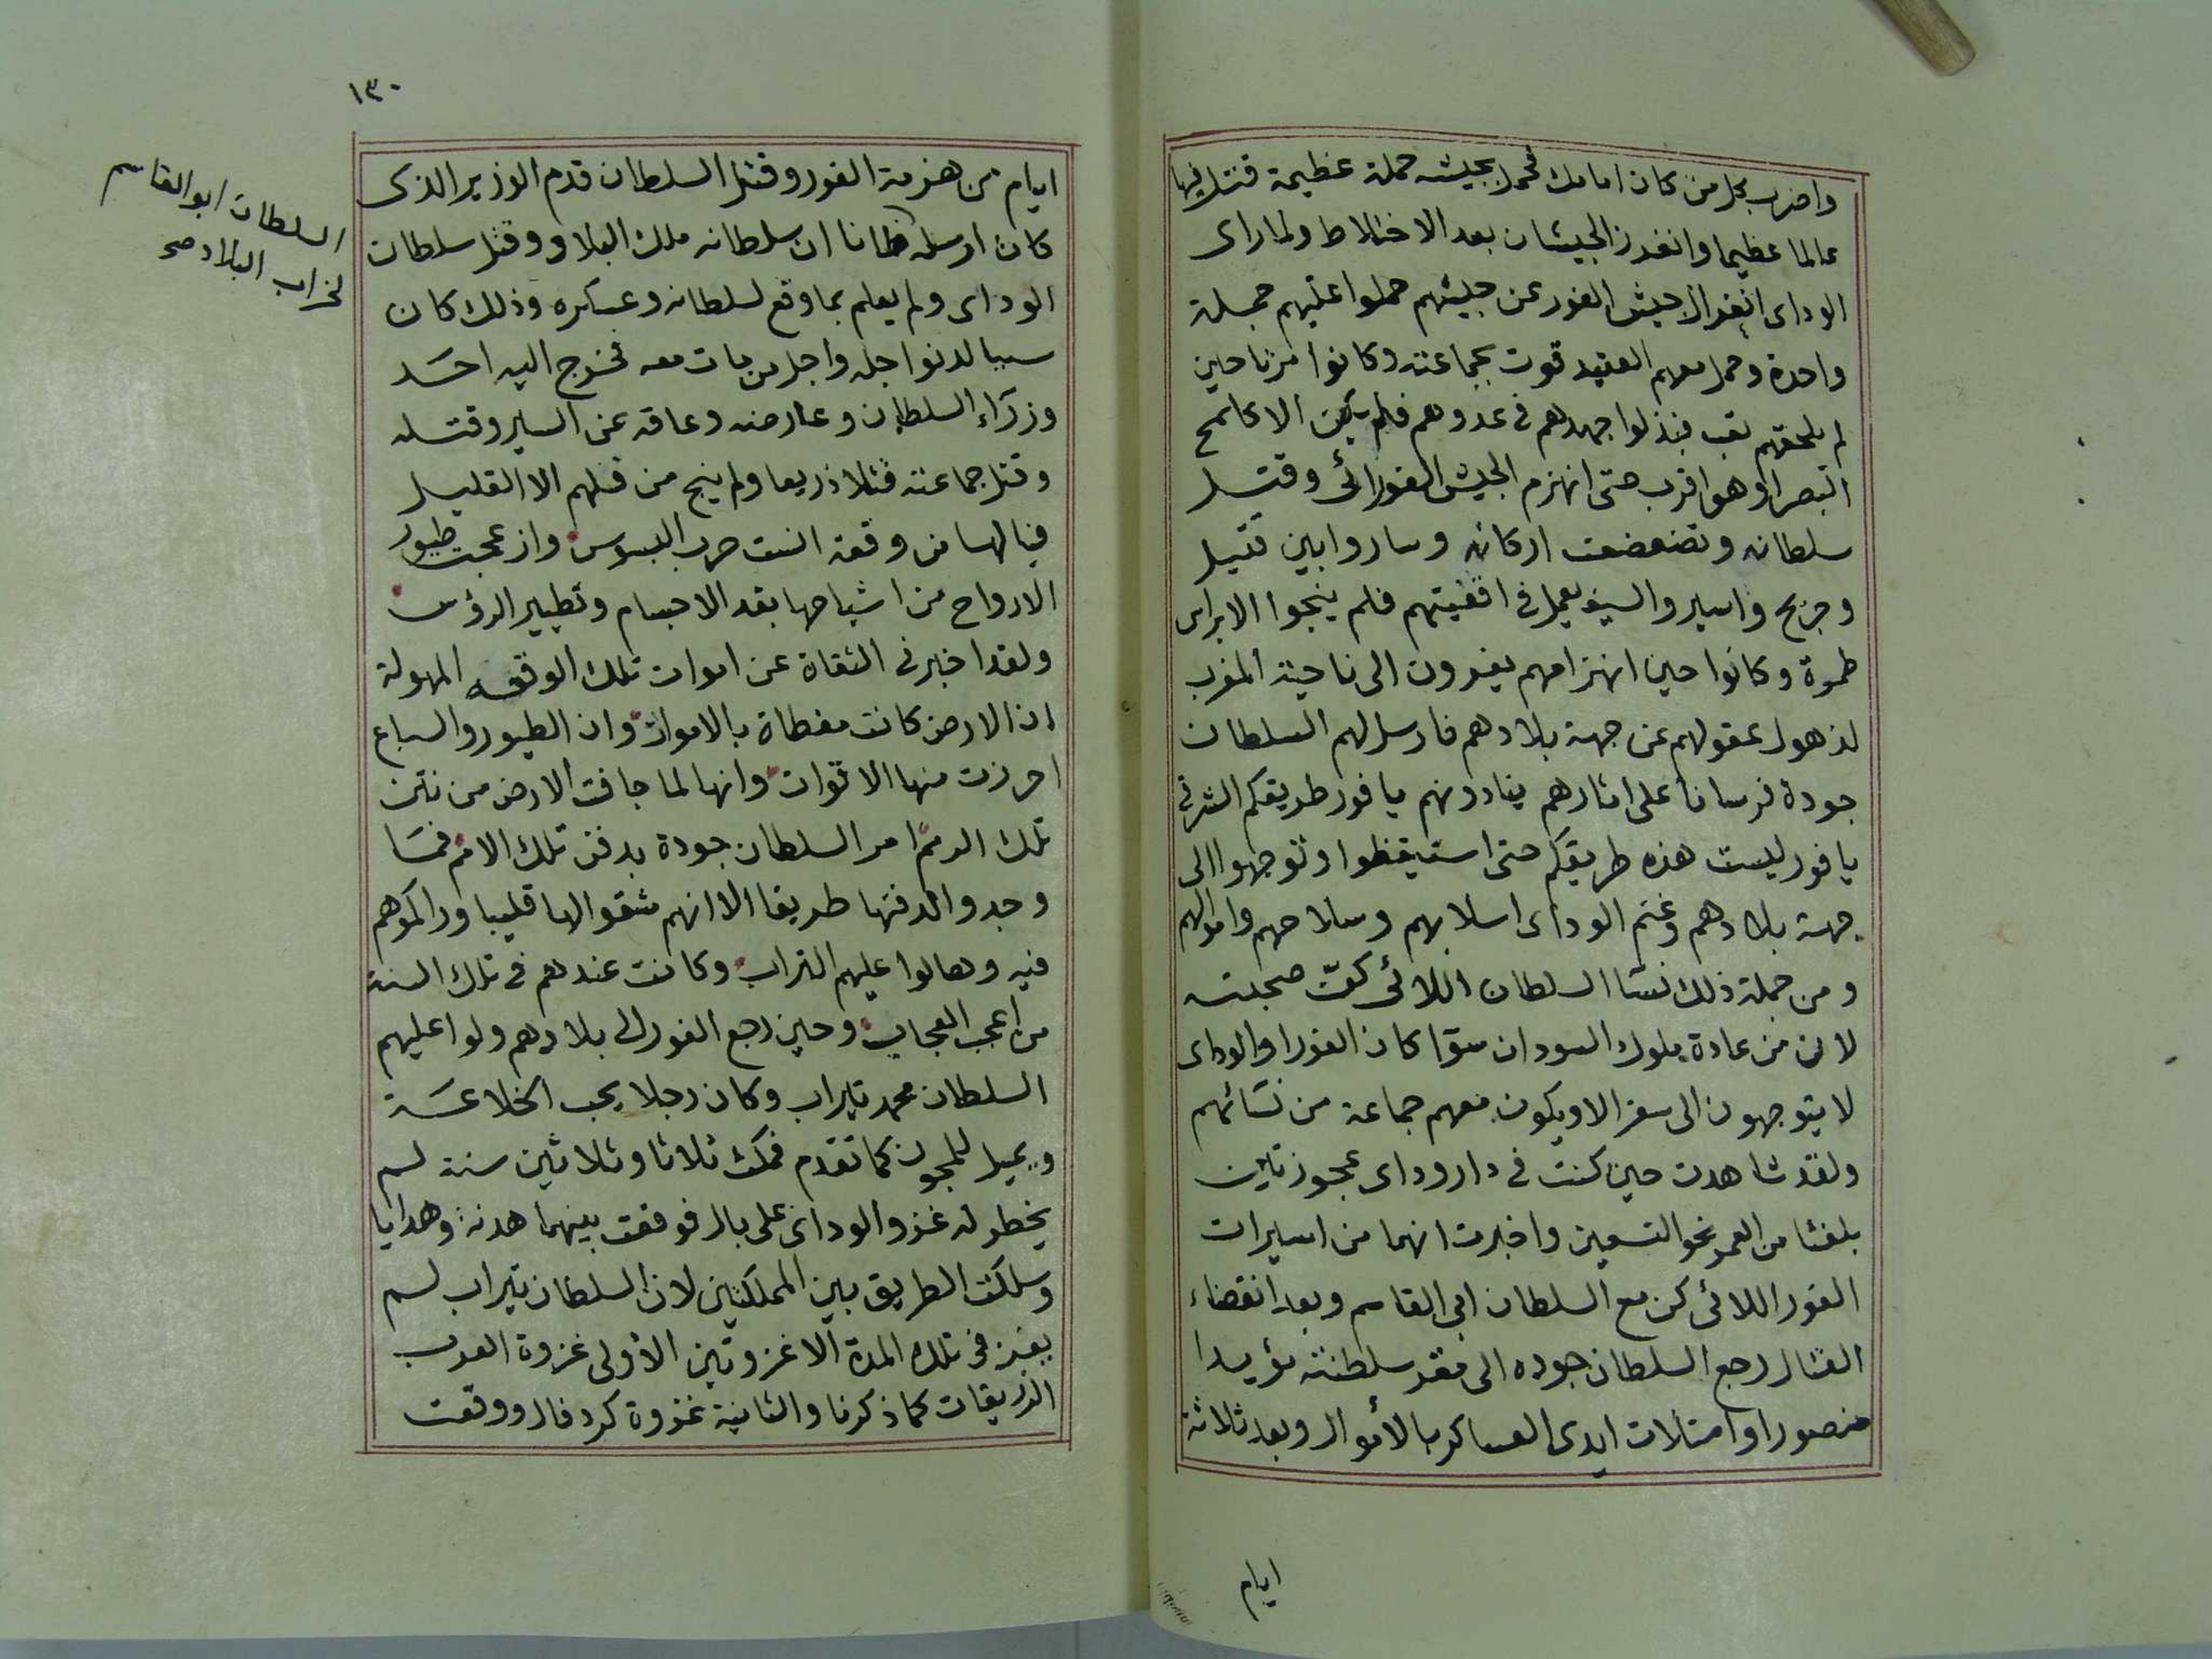 واضرب بكل من كان امامك فحمل بجيشه حملة عظيمة قتل فيها
عالما عظيما وانفرز الجيشان بعد الاختلاط ولما راى
الوداى انفراز جيش الفور عن جيشهم حملوا عليهم حملة
واحدة وحمل معهم العقيد قوت بجماعته وكانوا مرتاحين
لم يلحقهم تعب فبذلوا جهدهم فى عدوهم فلم يكن الا كلمح
البصر او هو اقرب حتى انهزم الجيش الفوراوى وقتل
سلطانه وتضعضعت اركانه وساروا بين قتيل
وجريح واسير والسيف يعمل فى اقفيتهم فلم ينجوا الا براس
طمرة وكانوا حين انهزامهم يفرون الى ناحية المغرب
لذهول عقولهم عن جهة بلادهم فارسل لهم السلطان
جودة فرسانا على اثارهم ينادونهم يا فور طريقكم الشرقى
يا فور ليست هذه طريقكم حتى استيقظوا وتوجهوا الى
جهة بلادهم وغنم الوداى اسلابهم وسلاحهم واموالهم
ومن جملة ذلك نسا السلطان اللائى كن صحبته
لان من عادة ملوك السودان سوا كان الفور او الوداى
لا يتوجهون الى سفر الا ويكون معهم جماعة من نسائهم
ولقد شاهدت حين كنت فى دار وداى عجوزتين
بلغتا من العمر نحو التسعين واخبرت انهما من اسيرات
الفور اللائى كن مع السلطان ابى القاسم وبعد انقضاء
القتال رجع السلطان جوده الى مقر سلطنته مؤيدا
منصورا وامتلات ايدى العساكر بالأموال وبعد ثلاثة
ايام
١٣٠
ايام من هزيمة الفور وقتل السلطان قدم الوزير الذى
كان ارسله ظانا ان سلطانه ملك البلاد وقتل سلطان
الوداى ولم يعلم بما وقع لسلطانه وعسكره وذلك كان
سببا لدنو اجله واجل من بات معه فخرج اليه احد
وزراء السلطان وعارضه وعاقه عن السير وقتله
وقتل جماعته قتلا ذريعا ولم ينج من قتلهم الا القليل
فيا لها من وقعة انست حرب البسوس وازعجت طيور
الارواح من اشباحها بقد الاجسام وتطيير الرؤس
ولقد اخبرنى الثقاة عن اموات تلك الوقعه المهولة
ان الارض كانت مغطاة بالاموات وان الطيور والسباع
احرزت منها الاقوات وانها لما جافت الارض من نتن
تلك الرمم امر السلطان جودة بدفن تلك الامم فما
وجدوا لدفنها طريقا الا انهم شقوا لها قليبا وراكموهم
فيه وهالوا عليهم التراب وكانت عندهم فى تلك السنة
من اعجب العجاب وحين رجع الفور الى بلادهم ولوا عليهم
السلطان محمد تيراب وكان رجلا يحب الخلاعة
ويميل للمجون كما تقدم فمكث ثلاثا وثلاثين سنة لم
يخطر له غزو الوداى على بال فوقعت بينهما هدنة وهدايا
وسلكت الطريق بين المملكتين لان السلطان تيراب لم
يغز فى تلك المدة الا غزوتين الأولى غزوة العرب
الزريقات كما ذكرنا والثانية غزوة كردفال ووقعت
السلطان ابو القاسم
لخراب البلاد صح